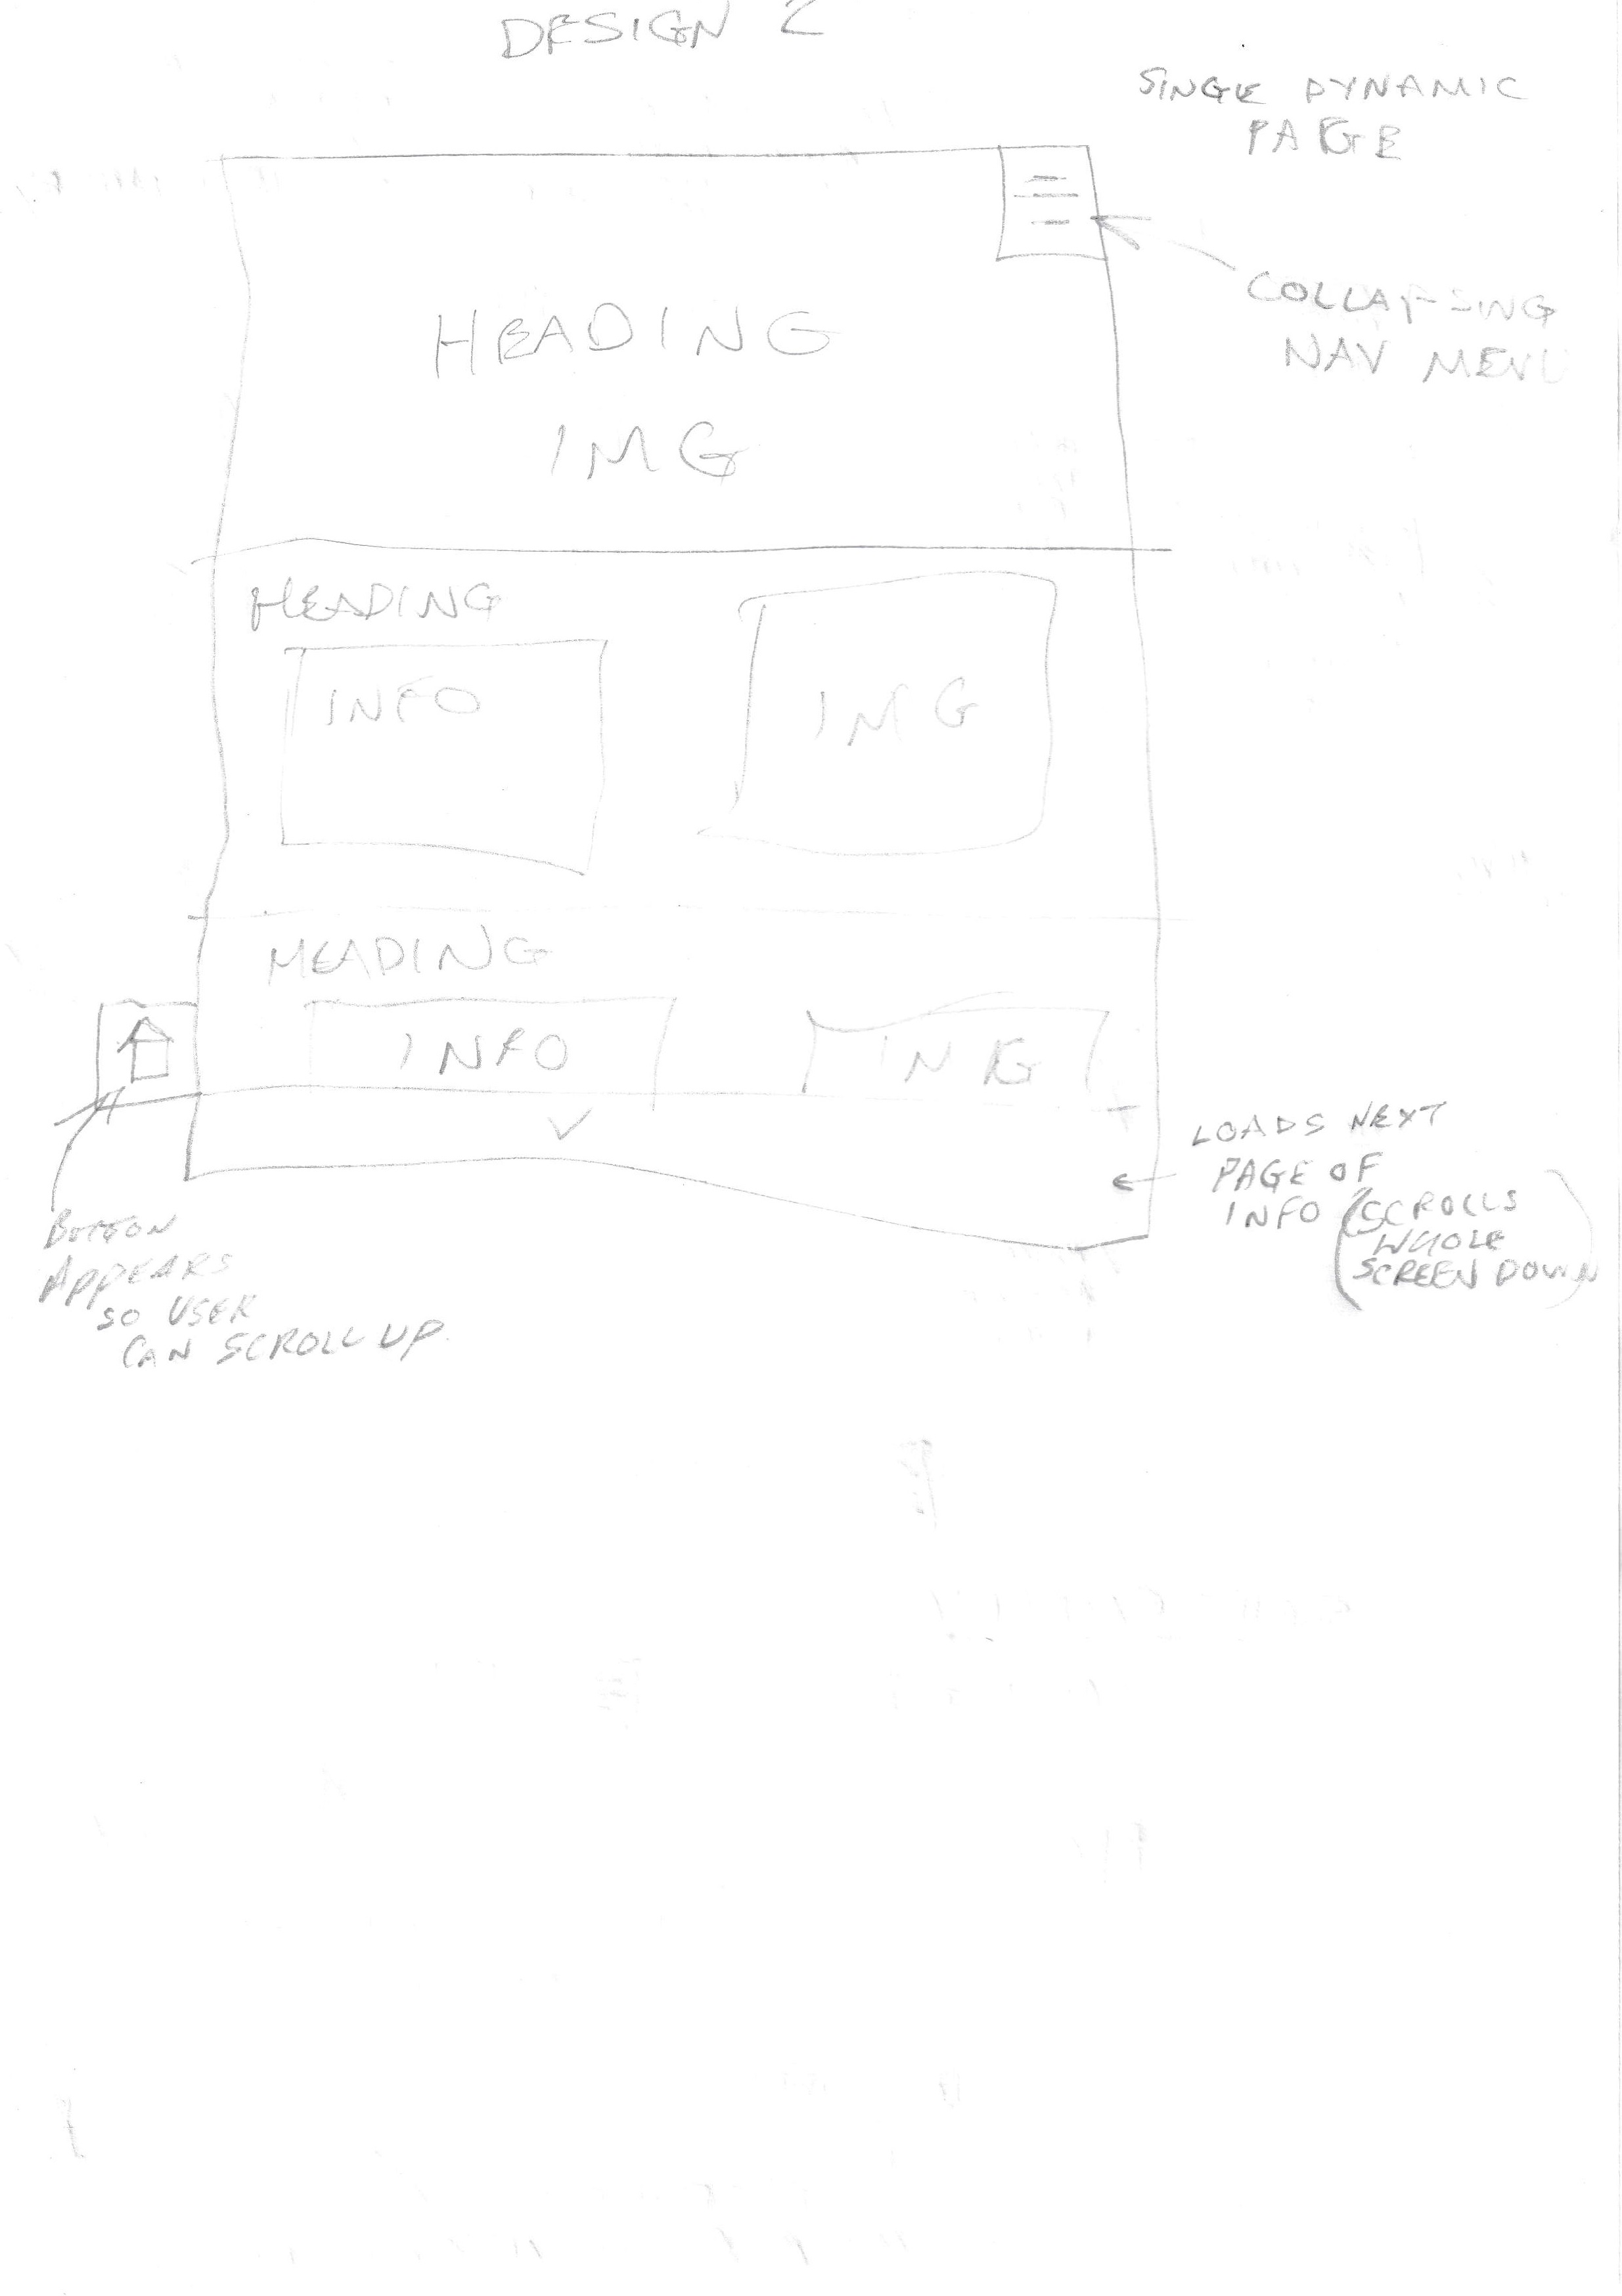 DESIGN 2
SINGLE DYNAMIC
PAGE
COLLAPSING
NAV MENU
HEADING
IMG
HEADING
INFO
IMG
HEADING
INFO
IMG
LOADS NEXT
PAGE OF
INFO (SCROLLS
WHOLE
SCREEN DOWN)
BUTTON
APPEARS
SO USER
CAN SCROLL UP